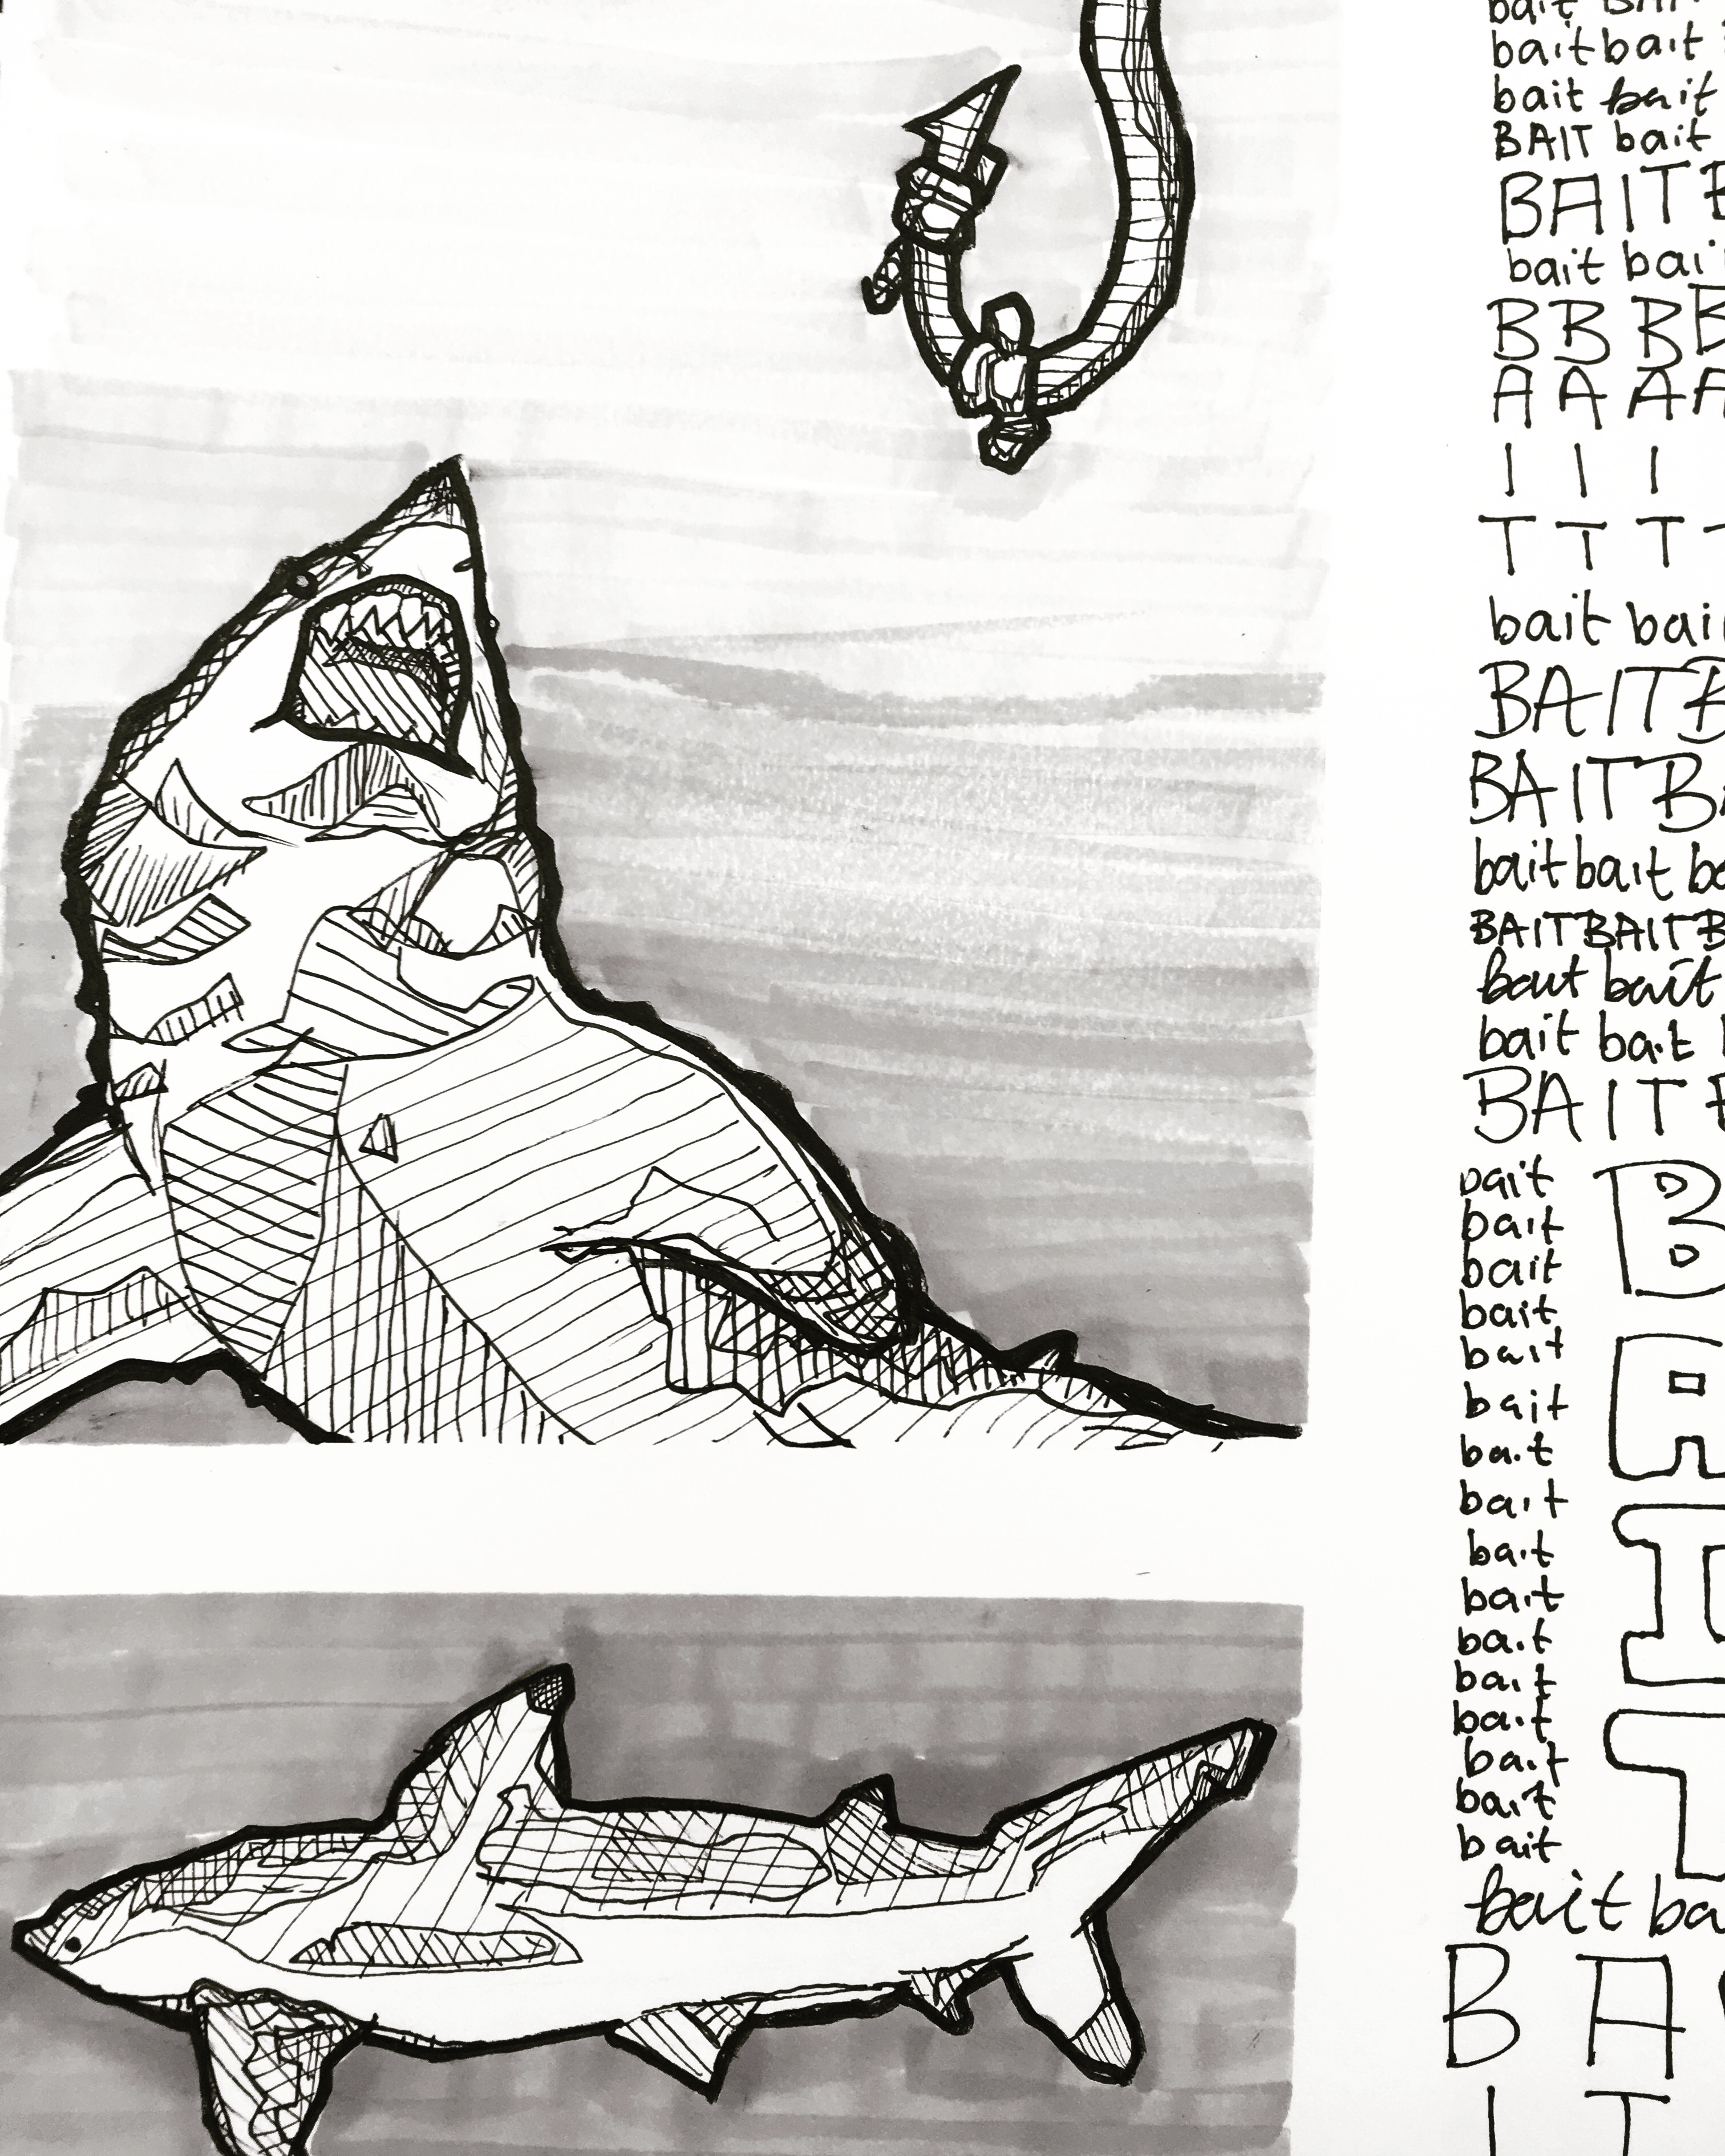 bait BAIT
bait bait
bait bait
BAIT bait
BAIT
bait bait
B B B B
A A A A
I I I
T T T T
bait bait
BAIT B
BAIT B
bait bait
BAIT BAIT B
bait bait
bait bait
BAIT
bait
bait
bait
bait
bait
bait
bait
bait
bait
bait
bait
bait
bait
bait
bait
bait
B
A
I
T
bait ba
B A
I T